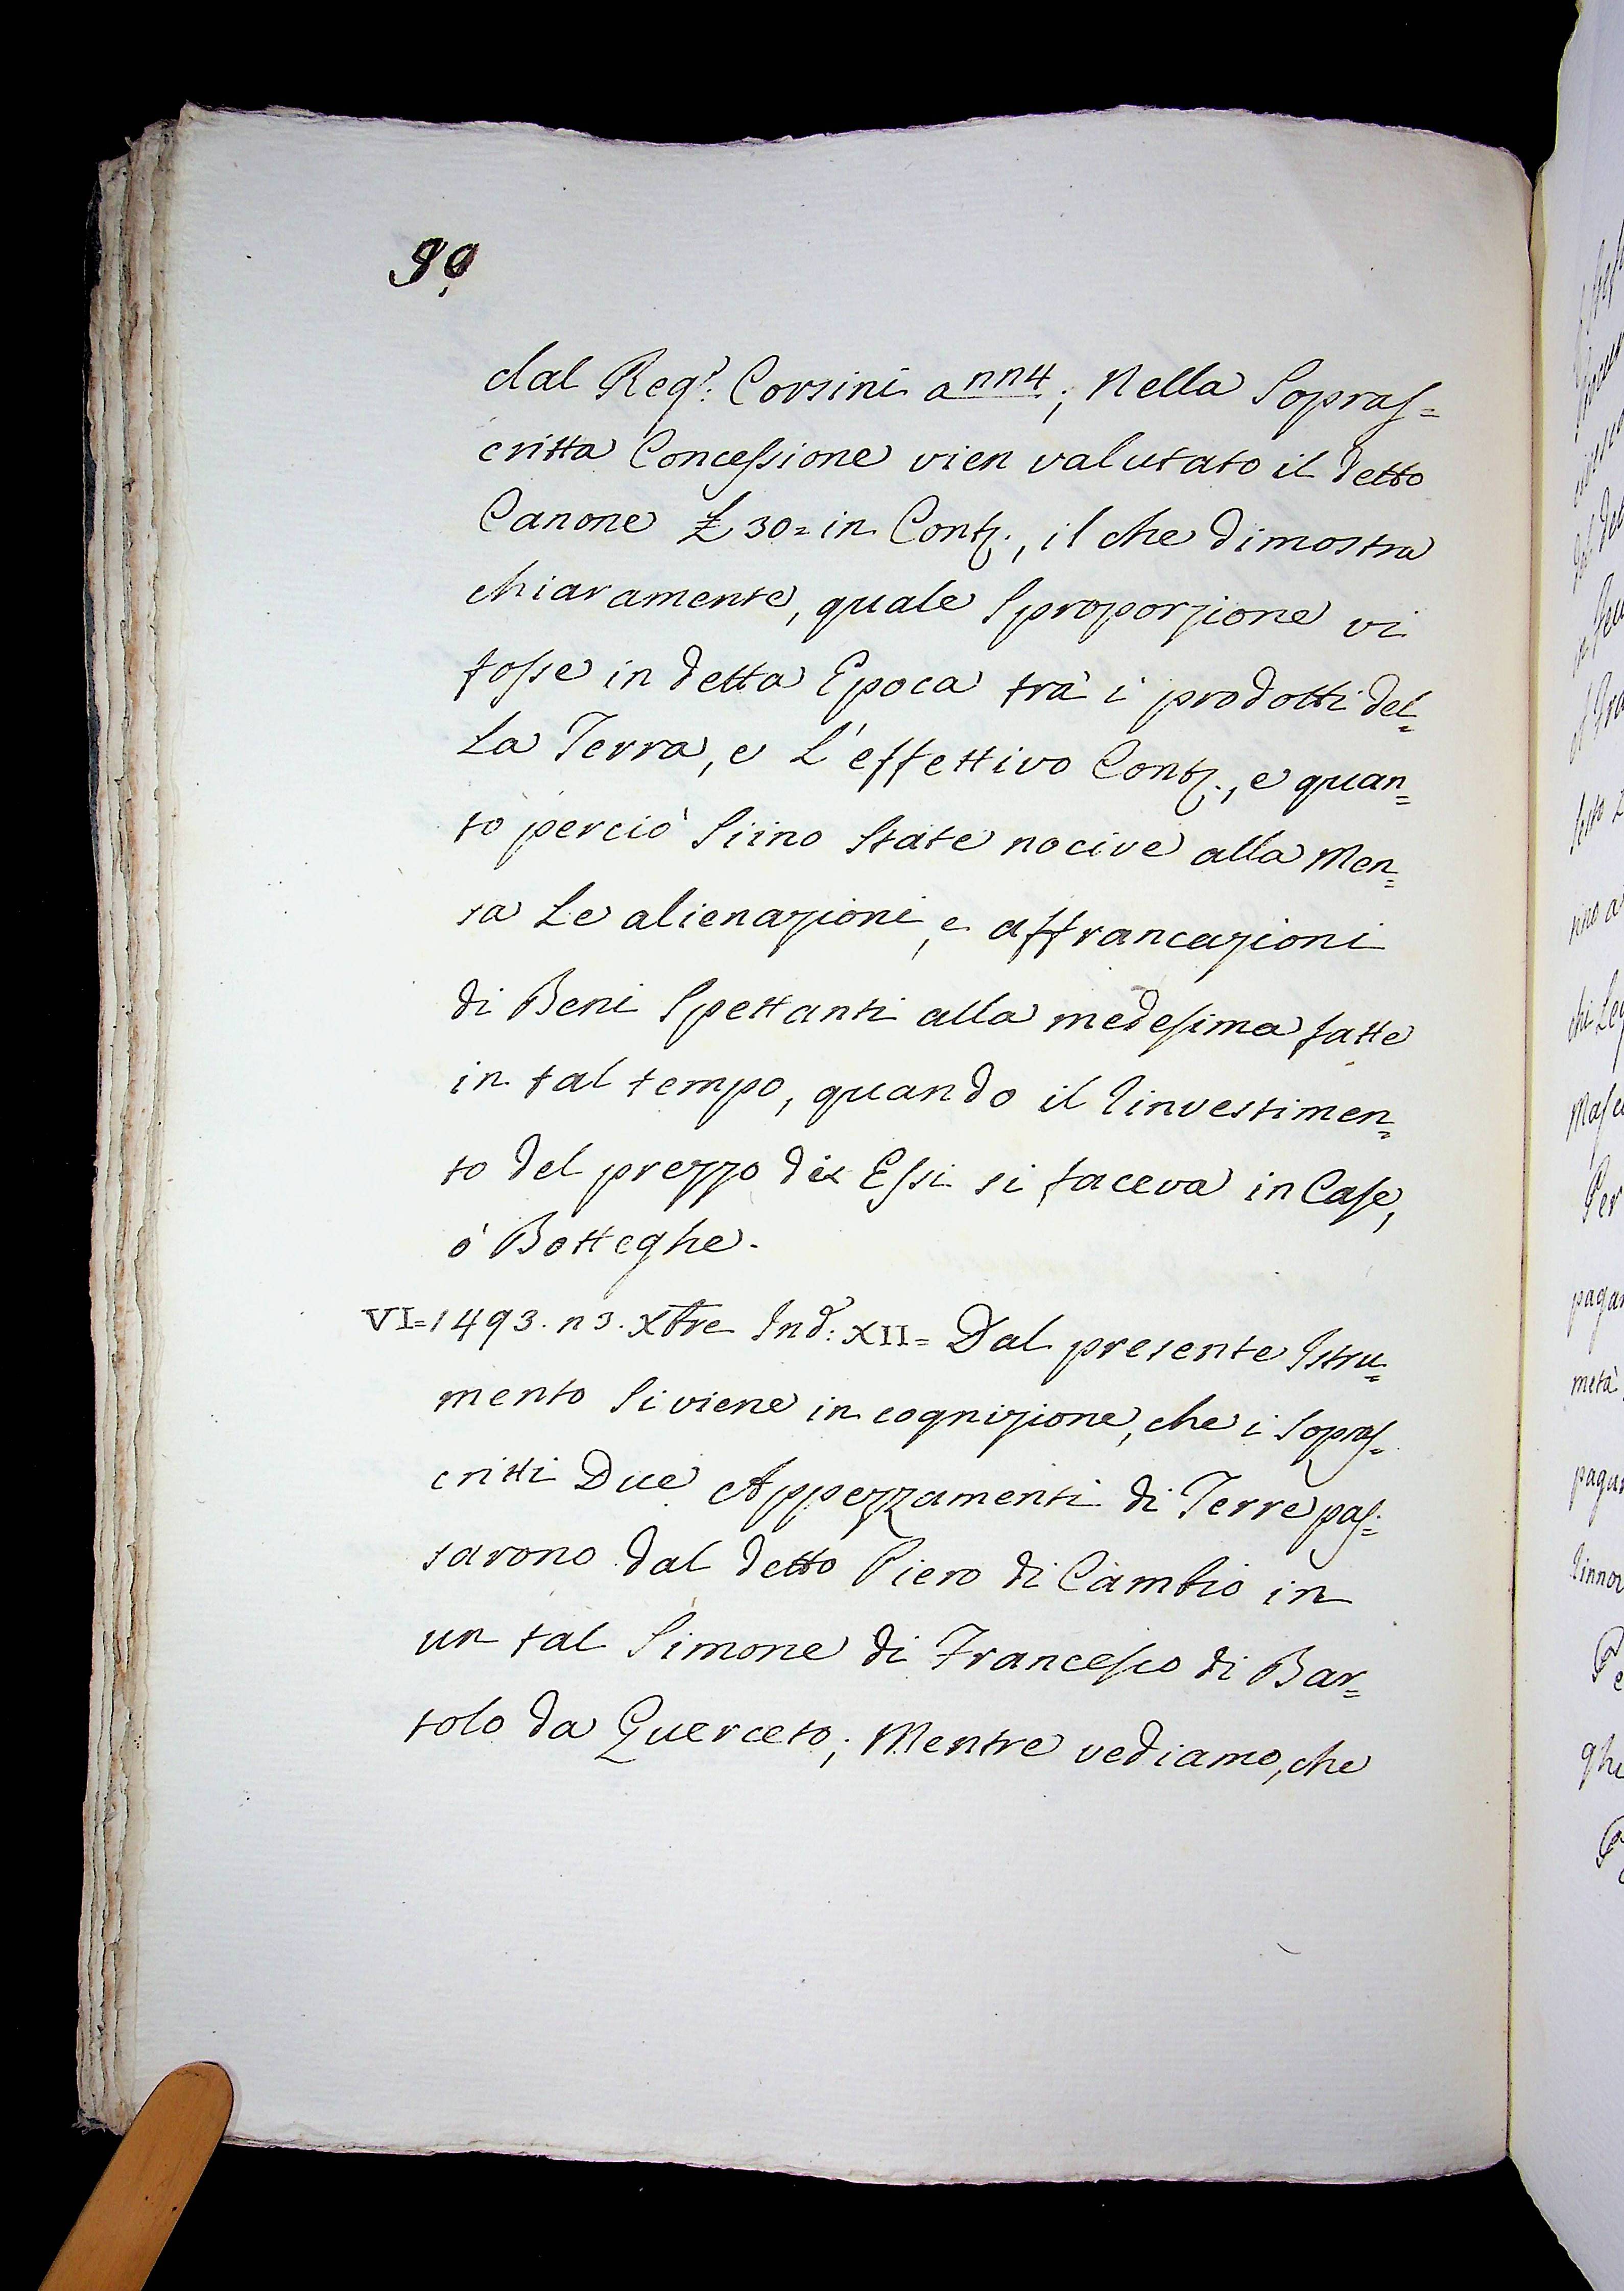 90
dal Reg.º Corsini a nn4; Nella Sopras=
critta Concessione vien valutato il detto
Canone £ 30= in Cont., il che dimostra
chiaramente, quale Sproporzione vi
fosse in detta Epoca trà i prodotti del=
la Terra, e l'effettivo Cont., e quan=
to perciò Siino State nocive alla Men=
sa Le alienazioni, e affrancazioni
di Beni Spettanti alla medesima fatte
in tal tempo, quando il Rinvestimen=
to del prezzo di Essi si faceva in Case,
ò Botteghe.
VI=1493. n 3. Xbre Ind: XII= Dal presente Istru=
mento Si viene in cognizione, che i Sopras=
critti Due Appezzamenti di Terre pas=
sarono dal detto Piero di Cambio in
un tal Simone di Francesco di Bar=
tolo da Querceto; Mentre vediamo, che